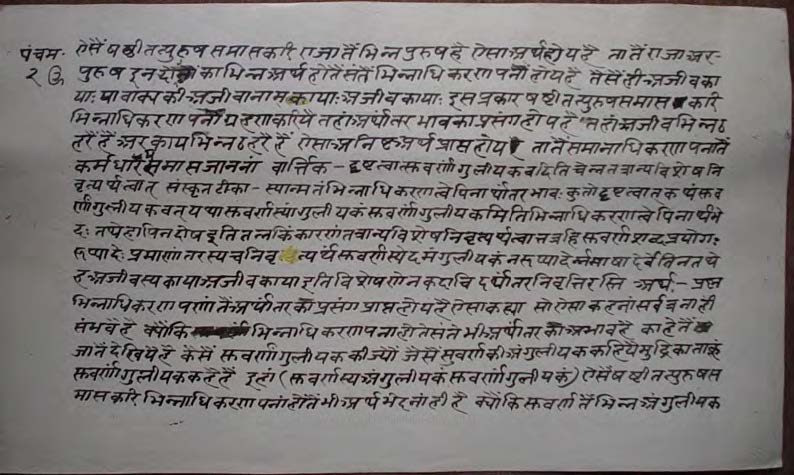 पंचम. ऐसैं षष्ठीतत्पुरुषसमासकरि राजातैं भिन्न पुरुष है ऐसा अर्थ होय है तातैं राजा अर-
२ पुरुष इन दोनूं का भिन्न अर्थ होतैं संतैं भिन्नाधिकरणपनौं होय है तैसें ही अजीव का
याः या वाक्य की अजीवानाम कायाः अजीवकायाः इस प्रकार षष्ठीतत्पुरुषसमास करि
भिन्नाधिकरणपनौं ग्रहण करियै तहां अर्थांतर भाव का प्रसंग होय है तहां अजीव भिन्न ठ
हरैं हैं अर काय भिन्न ठहरै हैं ऐसा अनिष्ट अर्थ प्राप्त होय तातैं समानाधिकरणपनातैं
कर्मधारै समास जाननां वार्त्तिक - दृष्टत्वात्सुवर्णांगुलीयकवदिति चेन्न तत्राप्यन्यविशेषनि
वृत्त्यर्थत्वात् संस्कृत टीका - स्यान्मतं भिन्नाधिकरणत्वेपि नार्थांतरभावः कुतो दृष्टत्वात् कथं सुव
र्णांगुलीयकवत् यथा सुवर्णस्यांगुलीयकं सुवर्णांगुलीयकमिति भिन्नाधिकरणत्वेपि नार्थभे
दः तथेहापि न दोष इति तन्न किं कारणं तत्राप्यन्यविशेषनिवृत्त्यर्थत्वात् तत्र हि सुवर्णशब्दप्रयोगः
रूप्यादेः प्रमाणांतरस्य च निवृत्त्यर्थं सुवर्णस्येदमंगुलीयकं न रूप्यादेर्न माषादेर्वेति न तथे
ह अजीवस्य काया अजीवकाया इति विशेषणेन कदाचिदर्थांतरनिवृत्तिरस्ति अर्थः - प्रश्न
भिन्नाधिकरणपणांतैं अर्थांतर को प्रसंग प्राप्त होय है ऐसा कह्या सो ऐसा कहनां सर्वत्र नाही
संभवै है क्योंकि भिन्नाधिकरणपना होतैं संतैं भी अर्थांतर को अभाव है काहेतैं
जातैं देखिये है कैसें सुवर्णांगुलीयक की ज्यौं जैसें सुवर्ण की अंगुलीयक कहियै मुद्रिका ताकूं
सुवर्णांगुलीयक कहै हैं इहां (सुवर्णस्य अंगुलीयकं सुवर्णांगुलीयकं) ऐसै षष्ठीतत्पुरुषस
मास करि भिन्नाधिकरणपनां होतैं भी अर्थभेद नाही है क्योंकि सुवर्णतैं भिन्न अंगुलीयक